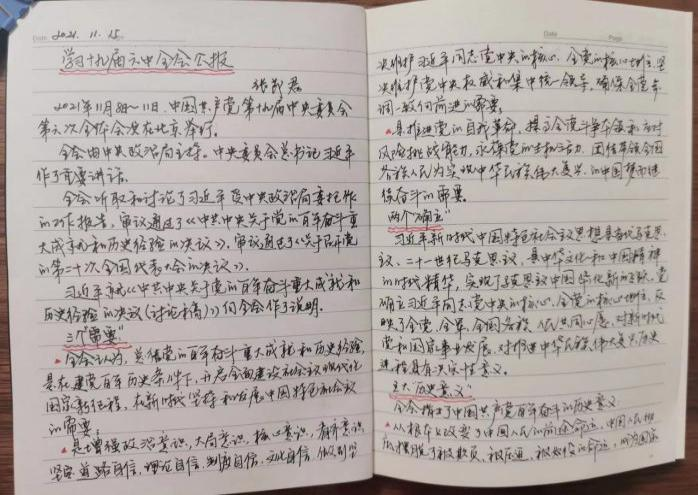 Date 2021.11.15
学习十九届六中全会公报
张
2021年11月8日～11日,中国共产党第十九届中央委员会
第六次全体会议在北京举行。
全会由中央政治局主持。中央委员会总书记习近平
作了重要讲话。
全会听取和讨论了习近平受中央政治局委托作
的工作报告,审议通过了《中共中央关于党的百年奋斗重
大成就和历史经验的决议》,审议通过了《关于召开党
的第二十次全国代表大会的决议》。
习近平就《中共中央关于党的百年奋斗重大成就和
历史经验的决议(讨论稿)》向全会作了说明。
三个"需要"
全会认为,总结党的百年奋斗重大成就和历史经验,
是在建党百年历史条件下,开启全面建设社会主义现代化
国家新征程,在新时代坚持和发展中国特色社会主义
的需要。
是增强政治意识,大局意识,核心意识,看齐意识,
坚定道路自信,理论自信,制度自信,文化自信,做到坚
Date Page
决维护习近平同志党中央的核心、全党的核心地位,坚
决维护党中央权威和集中统一领导,确保全党步
调一致向前进的需要。
是推进党的自我革命,提高全党斗争本领和应对
风险挑战能力,永葆党的生机活力,团结带领全国
各族人民为实现中华民族伟大复兴的中国梦而继
续奋斗的需要。
两个"确立"
习近平新时代中国特色社会主义思想是当代马克思主
义、二十一世纪马克思主义,是中华文化和中国精神
的时代精华,实现了马克思主义中国化新的飞跃。党
确立习近平同志党中央的核心、全党的核心地位,反
映了全党、全军、全国各族人民共同心愿,对新时代
党和国家事业发展、对推进中华民族伟大复兴历史
进程具有决定性意义。
五大"历史意义"
全会指出了中国共产党百年奋斗的历史意义:
从根本上改变了中国人民的前途命运,中国人民彻
底摆脱了被欺负、被压迫、被奴役的命运,成为国家